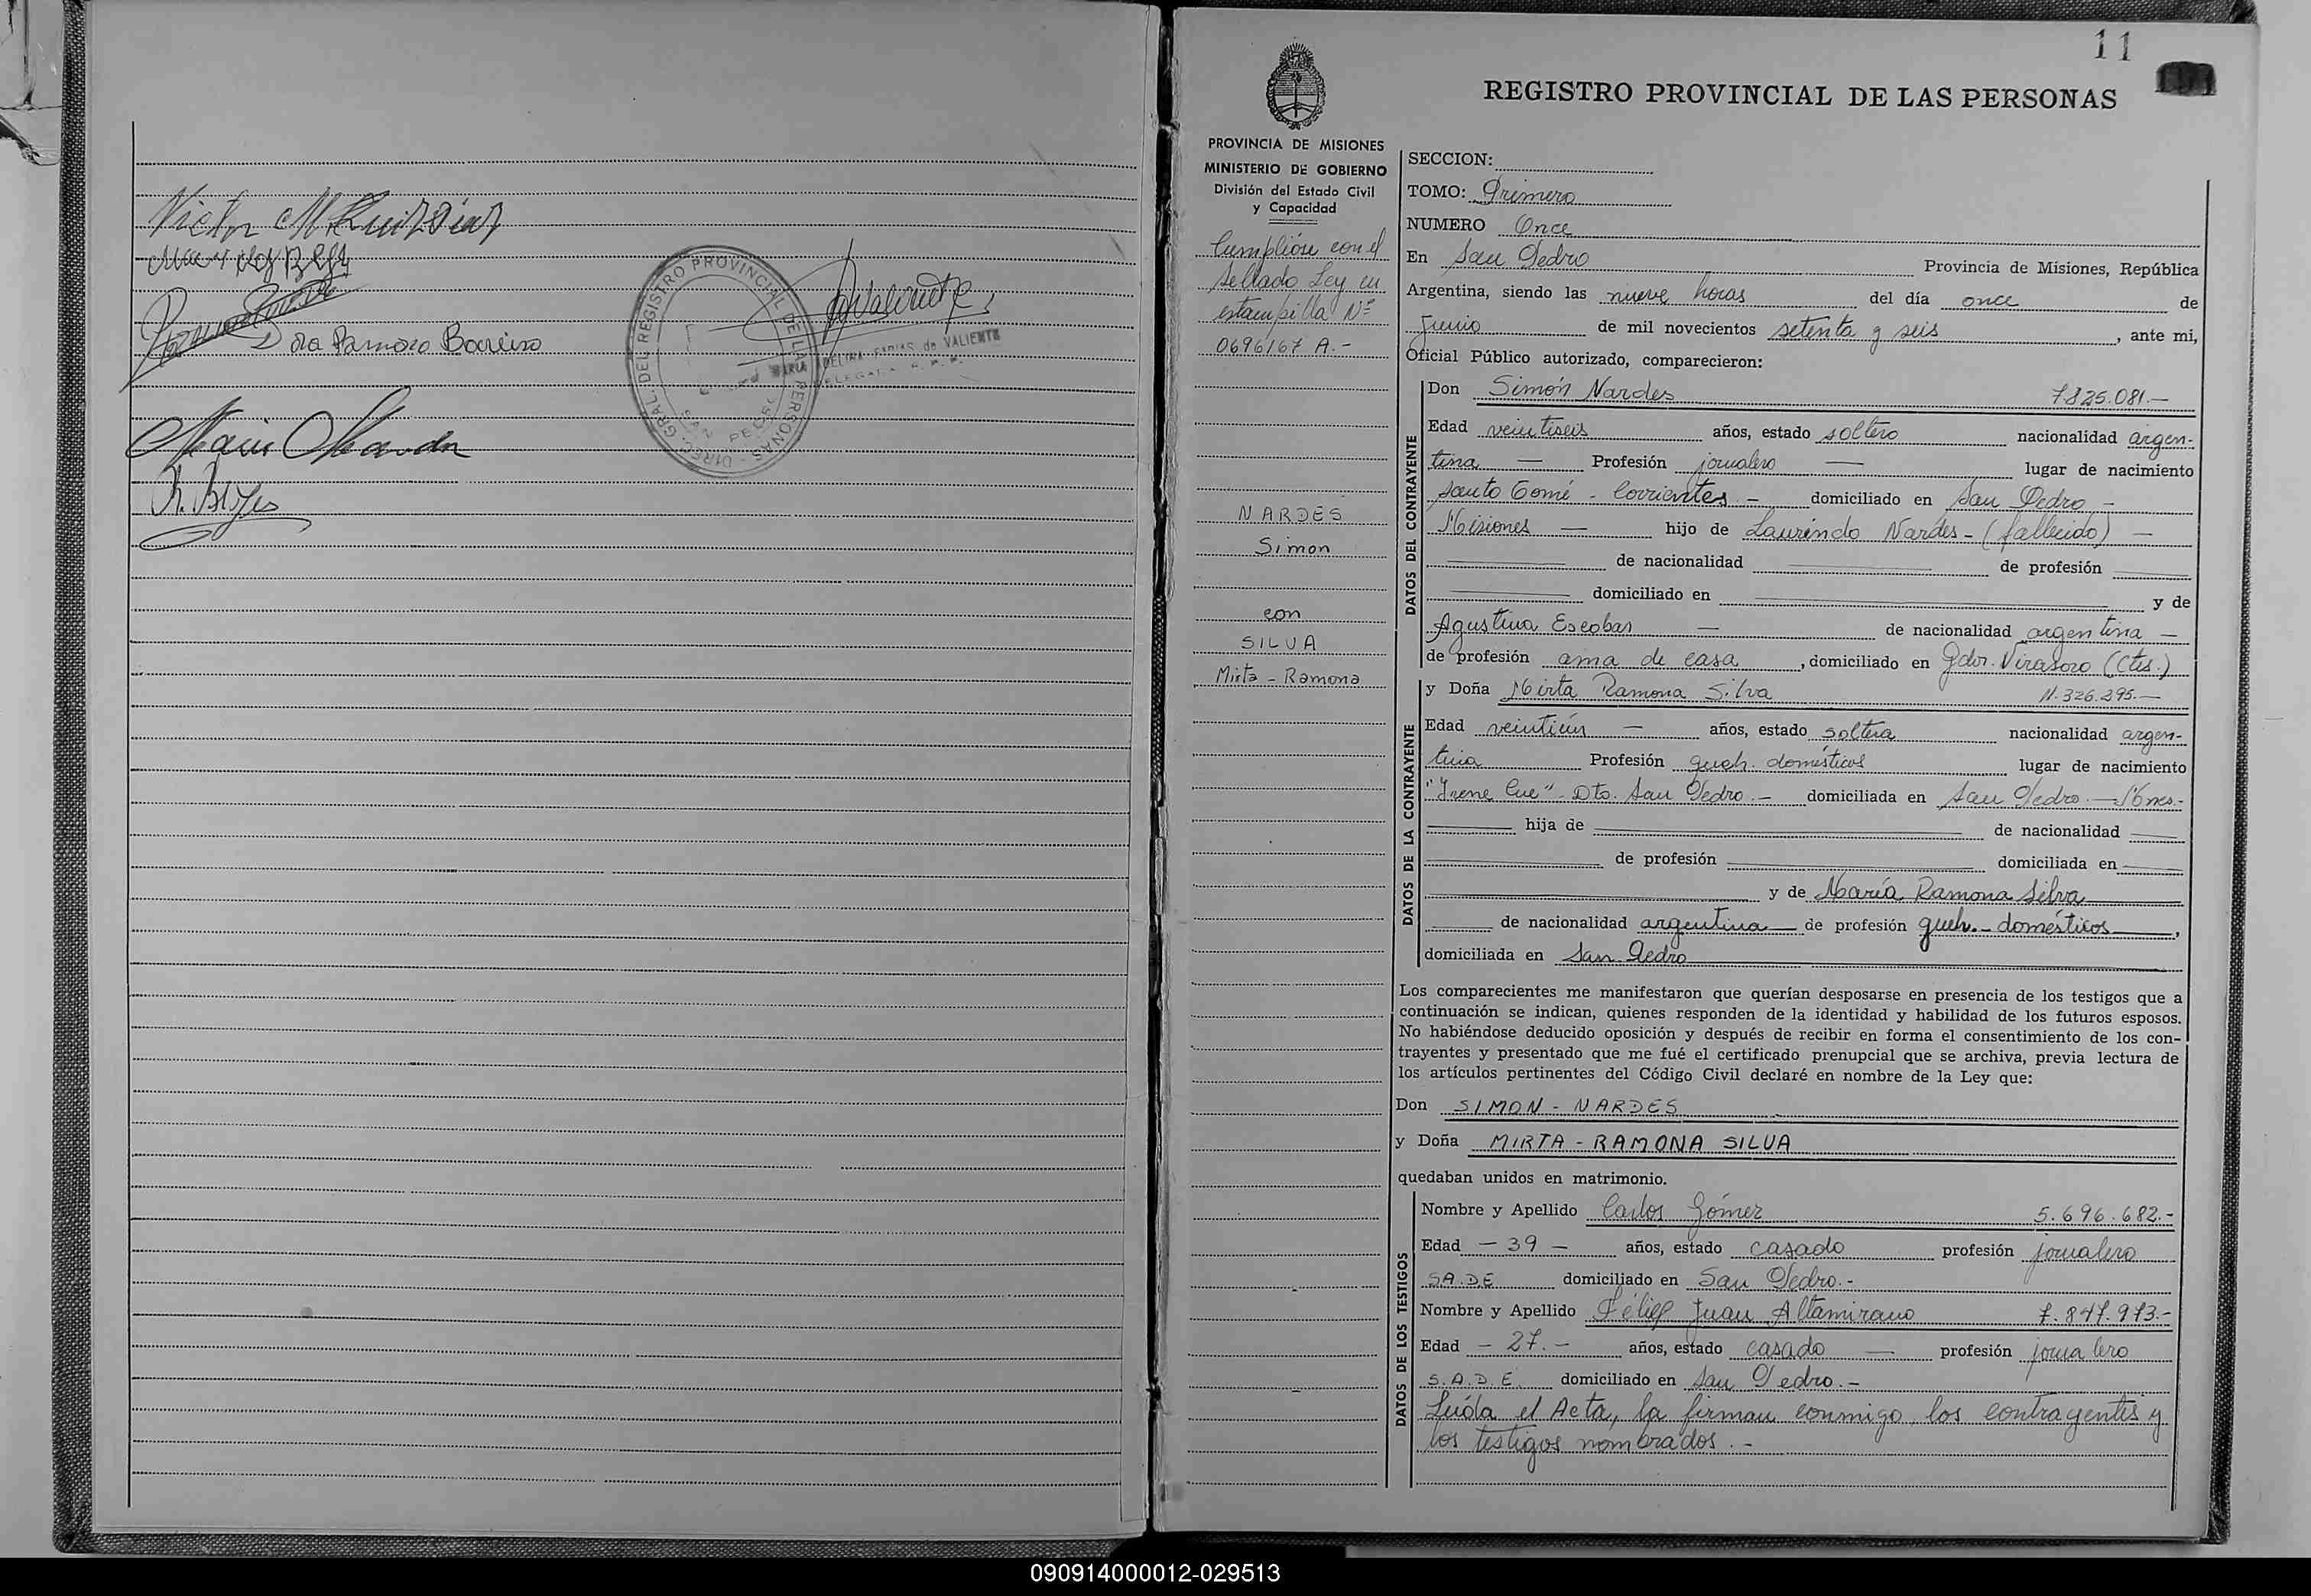 Victor M Ruiz Diaz
Dora Ramoso Barreiro
DIREC. GRAL. DEL REGISTRO PROVINCIAL DE LAS PERSONAS
SAN PEDRO
MARIA DELINA FARIAS de VALIENTE
DELEGADA R. P. P.
R. Bryes
11
REGISTRO PROVINCIAL DE LAS PERSONAS
PROVINCIA DE MISIONES
MINISTERIO DE GOBIERNO
División del Estado Civil
y Capacidad
Cumplióse con el
sellado Ley en
estampilla Nº
0696167 A.-
NARDES
Simon
con
SILVA
Mirta - Ramona
SECCION:
TOMO: Primero
NUMERO Once
En San Pedro Provincia de Misiones, República
Argentina, siendo las nueve horas del día once de
Junio de mil novecientos setenta y seis, ante mi,
Oficial Público autorizado, comparecieron:
DATOS DEL CONTRAYENTE
Don Simón Nardes 7.825.081.—
Edad veintiseis años, estado soltero nacionalidad argen-
tina — Profesión jornalero — lugar de nacimiento
Santo Tomé - Corrientes.- domiciliado en San Pedro -
Misiones — hijo de Laurindo Nardes - (fallecido) —
de nacionalidad de profesión
domiciliado en y de
Agustina Escobar — de nacionalidad argentina —
de profesión ama de casa, domiciliado en Gdor. Virasoro (Ctes.)
DATOS DE LA CONTRAYENTE
y Doña Mirta Ramona Silva 11.326.295.—
Edad veintiún — años, estado soltera nacionalidad argen-
tina Profesión queh. domésticos lugar de nacimiento
"Irene Cue" - Dto. San Pedro.- domiciliada en San Pedro.— Mnes.-
hija de de nacionalidad
de profesión domiciliada en
y de María Ramona Silva
de nacionalidad argentina — de profesión queh.- domésticos,
domiciliada en San Pedro
Los comparecientes me manifestaron que querían desposarse en presencia de los testigos que a
continuación se indican, quienes responden de la identidad y habilidad de los futuros esposos.
No habiéndose deducido oposición y después de recibir en forma el consentimiento de los con-
trayentes y presentado que me fué el certificado prenupcial que se archiva, previa lectura de
los artículos pertinentes del Código Civil declaré en nombre de la Ley que:
Don SIMON - NARDES
y Doña MIRTA - RAMONA SILVA
quedaban unidos en matrimonio.
DATOS DE LOS TESTIGOS
Nombre y Apellido Carlos Gómez 5.696.682.-
Edad - 39 - años, estado casado profesión jornalero
S.A.D.E domiciliado en San Pedro.-
Nombre y Apellido Félix Juan Altamirano 7.847.973.-
Edad - 27.- años, estado casado — profesión jornalero
S.A.D.E. domiciliado en San Pedro.-
Leída el Acta, la firman conmigo, los contrayentes y
los testigos nombrados.-
090914000012-029513